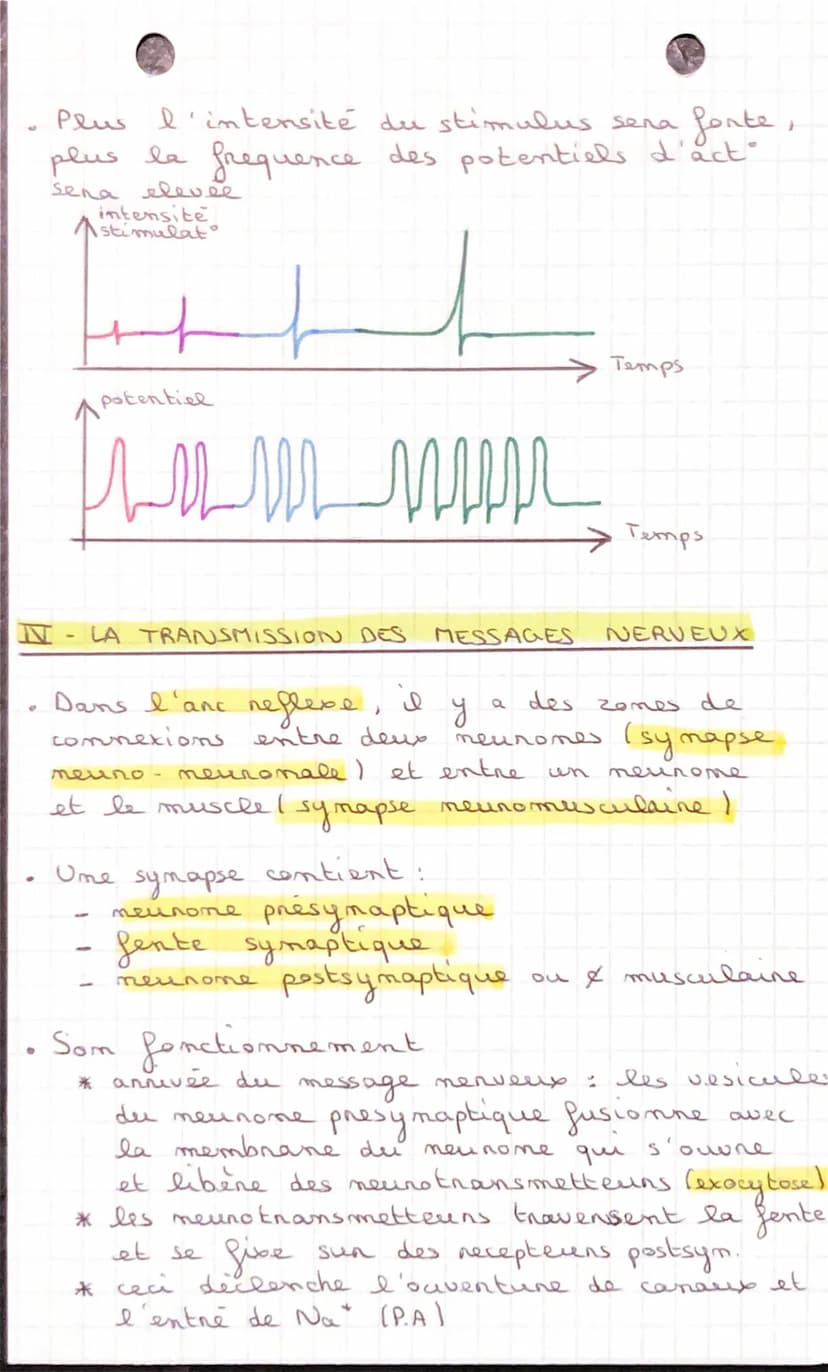 . Plus l'intensité du stimulus sera forte,
plus la frequence des potentiels d'act°
sera elevée
intensité
stimulat°
Temps
potentiel
Temps
IV - LA TRANSMISSION DES MESSAGES NERVEUX
. Dans l'arc reflexe, il y a des zones de
connexions entre deux neurones (synapse
neuro-neuronale) et entre un neurone
et le muscle (synapse neuromusculaire)
. Une synapse contient :
- neurone présynaptique
- fente synaptique
- neurone postsynaptique ou ¢ musculaire
. Son fonctionnement
* arrivée du message nerveux : les vesicules
du neurone presynaptique fusionne avec
la membrane du neurone qui s'ouvre
et libère des neurotransmetteurs (exocytose)
* les neurotransmetteurs traversent la fente
et se fixe sur des recepteurs postsym.
* ceci déclenche l'ouverture de canaux et
l'entré de Na⁺ (P.A)